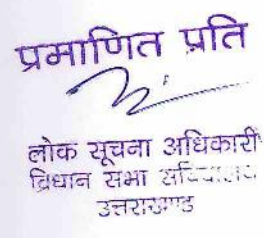 प्रमाणित प्रति
लोक सूचना अधिकारी
विधान सभा सचिवालय
उत्तराखण्ड